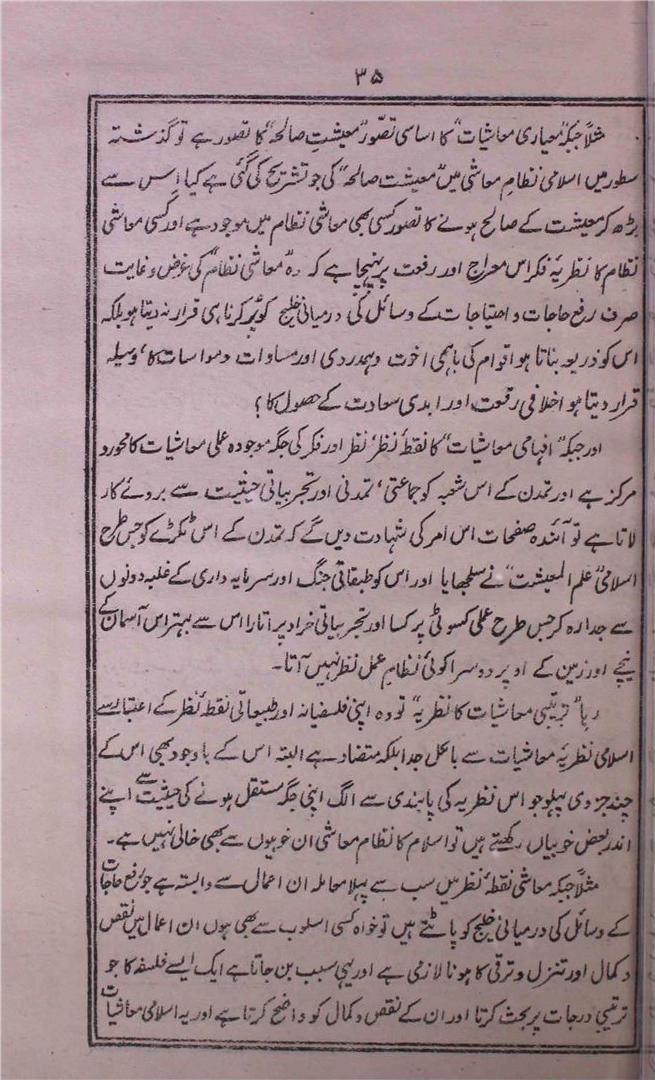 ۳۵
مثلاً جبکہ ”معیاری معاشیات“ کا اساسی تصوّر ”معیشتِ صالحہ“ کا تصور ہے تو گذشتہ
سطور میں اسلامی نظامِ معاشی میں ”معیشت صالحہ“ کی جو تشریح کی گئی ہے کیا اس سے
بڑھ کر معیشت کے صالح ہونے کا تصور کسی بھی معاشی نظام میں موجود ہے اور کسی معاشی
نظام کا نظریۂ فکر اس معراج اور رفعت پر پہنچا ہے کہ وہ ”معاشی نظام“ کی غرض و غایت
صرف رفع حاجات و احتیاجات کے وسائل کی درمیانی خلیج کو پُر کرنا ہی قرار نہ دیتا ہو بلکہ
اس کو ذریعہ بناتا ہو اقوام کی باہمی اخوت و ہمدردی اور مساوات و مواسات کا، وسیلہ
قرار دیتا ہو اخلاقی رفعت اور ابدی سعادت کے حصول کا؟
اور جبکہ ”افہامی معاشیات“ کا نقطۂ نظر، نظر اور فکر کی جگہ موجودہ علمی معاشیات کا محور و
مرکز ہے اور تمدن کے اس شعبہ کو جماعتی، تمدنی اور تجربیاتی حیثیت سے بروئے کار
لاتا ہے تو آئندہ صفحات اس امر کی شہادت دیں گے کہ تمدن کے اس ٹکڑے کو جس طرح
اسلامی ”علم المعیشت“ نے سلجھایا اور اس کو طبقاتی جنگ اور سرمایہ داری کے غلبہ دونوں
سے جدا رہ کر جس طرح عملی کسوٹی پر کسا اور تجربیاتی خراد پر اتارا اس سے بہتر اس آسمان کے
نیچے اور زمین کے اوپر دوسرا کوئی نظامِ عمل نظر نہیں آتا۔
رہا ”ترتیبی معاشیات کا نظریہ“ تو وہ اپنی فلسفیانہ اور طبیعاتی نقطۂ نظر کے اعتبار سے
اسلامی نظریۂ معاشیات سے بالکل جدا بلکہ متضاد ہے البتہ اس کے باوجود بھی اس کے
چند جزوی پہلو جو اس نظریہ کی پابندی سے الگ اپنی جگہ مستقل ہونے کی حیثیت سے اپنے
اندر بعض خوبیاں رکھتے ہیں تو اسلام کا نظام معاشی ان خوبیوں سے بھی خالی نہیں ہے۔
مثلاً جبکہ معاشی نقطۂ نظر میں سب سے پہلا معاملہ ان اعمال سے وابستہ ہے جو رفع حاجات
کے وسائل کی درمیانی خلیج کو پاٹتے ہیں تو خواہ کسی اسلوب سے بھی ہوں ان اعمال میں نقص
و کمال اور تنزل و ترقی کا ہونا لازمی ہے اور یہی سبب بن جاتا ہے ایک ایسے فلسفہ کا جو
ترتیبی درجات پر بحث کرتا اور ان کے نقص و کمال کو واضح کرتا ہے اور یہ اسلامی معاشیات